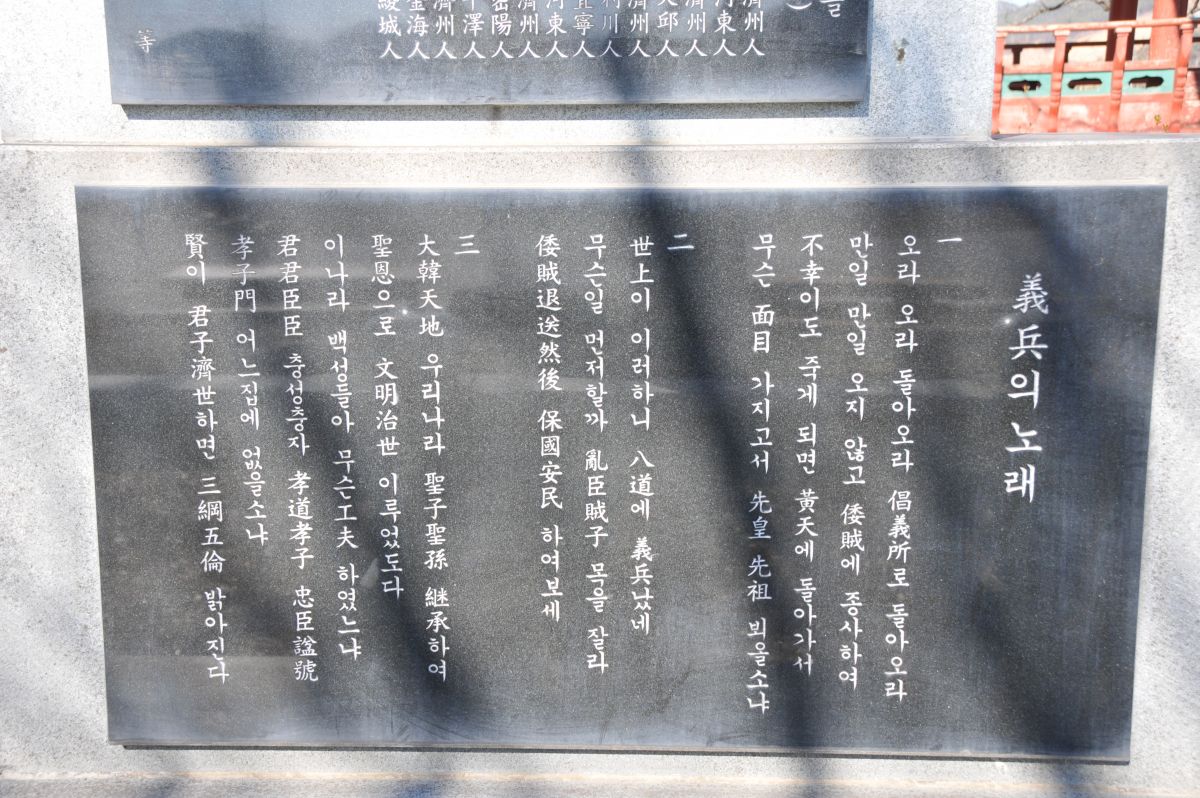 을
濟州人
河東人
濟州人
大邱人
濟州人
利川人
宜寧人
河東人
濟州人
密陽人
平澤人
濟州人
金海人
綾城人
等
義兵의 노래
一
오라 오라 돌아오라 倡義所로 돌아오라
만일 만일 오지 않고 倭賊에 종사하여
不幸이도 죽게 되면 黃天에 돌아가서
무슨 面目 가지고서 先皇 先祖 뵈올소냐
二
世上이 이러하니 八道에 義兵났네
무슨일 먼저할까 亂臣賊子 목을 잘라
倭賊退送然後 保國安民 하여보세
三
大韓天地 우리나라 聖子聖孫 継承하여
聖恩으로 文明治世 이루었도다
이나라 백성들아 무슨工夫 하였느냐
君君臣臣 충성충자 孝道孝子 忠臣諡號
孝子門 어느집에 없을소냐
賢이 君子濟世하면 三綱五倫 밝아진다